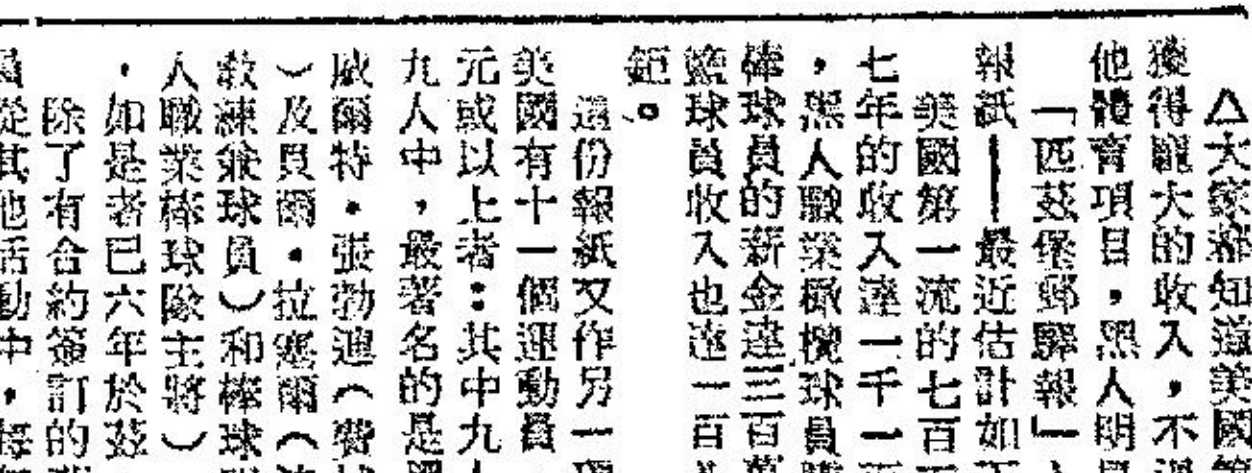 △大家都知道美國
獲得龐大的收入，不
他體育項目，黑人明
「匹茲堡郵驛報」
報紙——最近估計如下
美國第一流的七百
七年的收入達一千一百
，黑人職業橄欖球員
棒球員的薪金達三百萬
籃球員收入也達一百
鉅。
這份報紙又作另一
美國有十一個運動員
元或以上者：其中九人
九人中，最著名的是
威爾特・張勃迪（費
）及貝爾・拉塞爾（
教練兼球員）和棒球
人職業棒球隊主將）
，如是者已六年於茲
除了有合約簽訂的
員從其他活動中，每